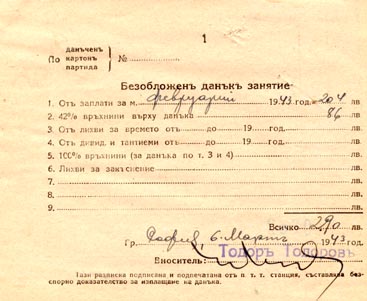 1
По данъченъ картонъ партида } № 
Безобложенъ данъкъ занятие
1. Отъ заплати за м. февруарий 1943 год. = 204 лв.
2. 42% връхнини върху данъка 86 лв.
3. Отъ лихви за времето отъ до 19 год. лв.
4. Отъ дивид. и тантиеми отъ до 19 год. лв.
5. 100% връхнини (за данъка по т. 3 и 4) лв.
6. Лихви за закъснение лв.
7. лв.
8. лв.
9. лв.
Всичко 290 лв.
Гр. София, 6. Мартъ 1943 г.
Тодоръ Тодоровъ
Вноситель:
Тази разписка подписана и подпечатана отъ п. т. т. станция, съставлява без-
спорно доказателство за изплащане на данъка.